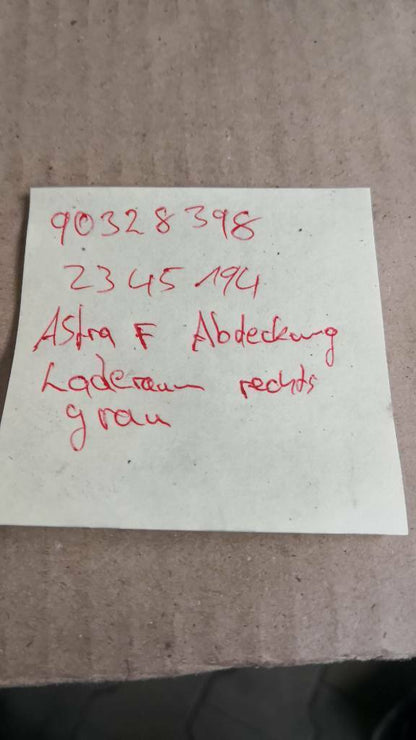 90328398
2345194
Astra F Abdeckung
Laderaum rechts
grau